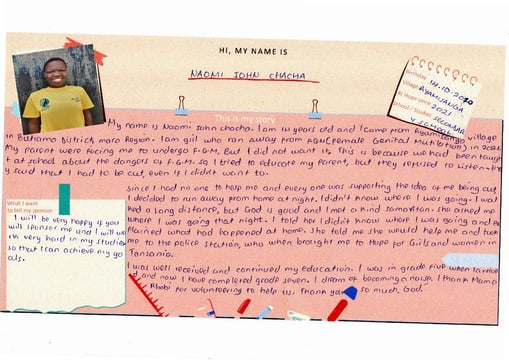 HI, MY NAME IS
NAOMI JOHN CHACHA
Birthday 14.10.2010
Village NYAMUANGA
At hope since 2021
School / Studies SECONDAR
Y SCHOOL
This is my story
My name is Naomi John chacha. I am 14 years old and I came from village
in Butiama District, mara Region. I am girl who ran away from FGM (Female Genital Mutilation) in 2021.
My parent were facing me to undergo F.G.M. But I did not want to. This is because we had been taugh
t at school about the dangers of F.G.M. so I tried to educate my parent, but they refused to listen. the
y said that I had to be cut, even if I didn't want to.
Since I had no one to help me and every one was supporting the idea of me being cut,
I decided to run away from home at night. I didn't know where I was going. I wal
ked a long distance, but God is good and I met a kind samaritan. she asked me
where I was going that night. I told her I didn't know where I was going and ex
Plained what had happened at home. She told me she would help me and took
me to the police station, who when brought me to Hope for Girls and women in
Tanzania.
I was well received and continued my education. I was in grade five when I arrive
d and now I have completed grade seven. I dream of becoming a nurse. I thank Mama
Rhobi for volunteering to help us. Thank you so much, God."
What I want
to tell my sponsor
I will be very happy if you
will sponsor me and I will wo
rk very hard in my studies
so that I can achieve my go
als.